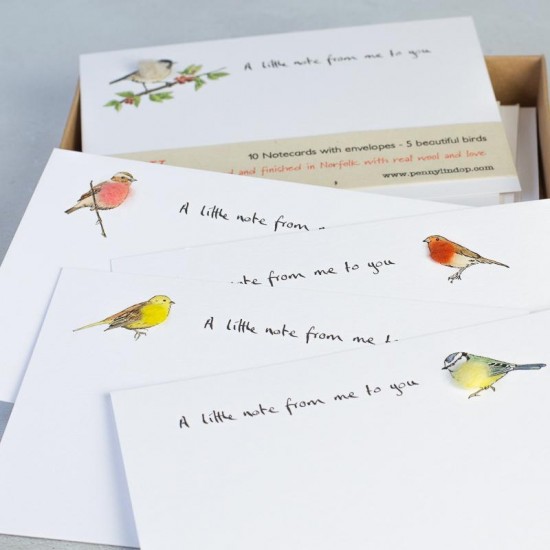 A little note from me to you
10 Notecards with envelopes - 5 beautiful birds
and finished in Norfolk with real wool and love.
www.pennylindop.com
A little note from
note from me to you
A little note from me
A little note from me to you